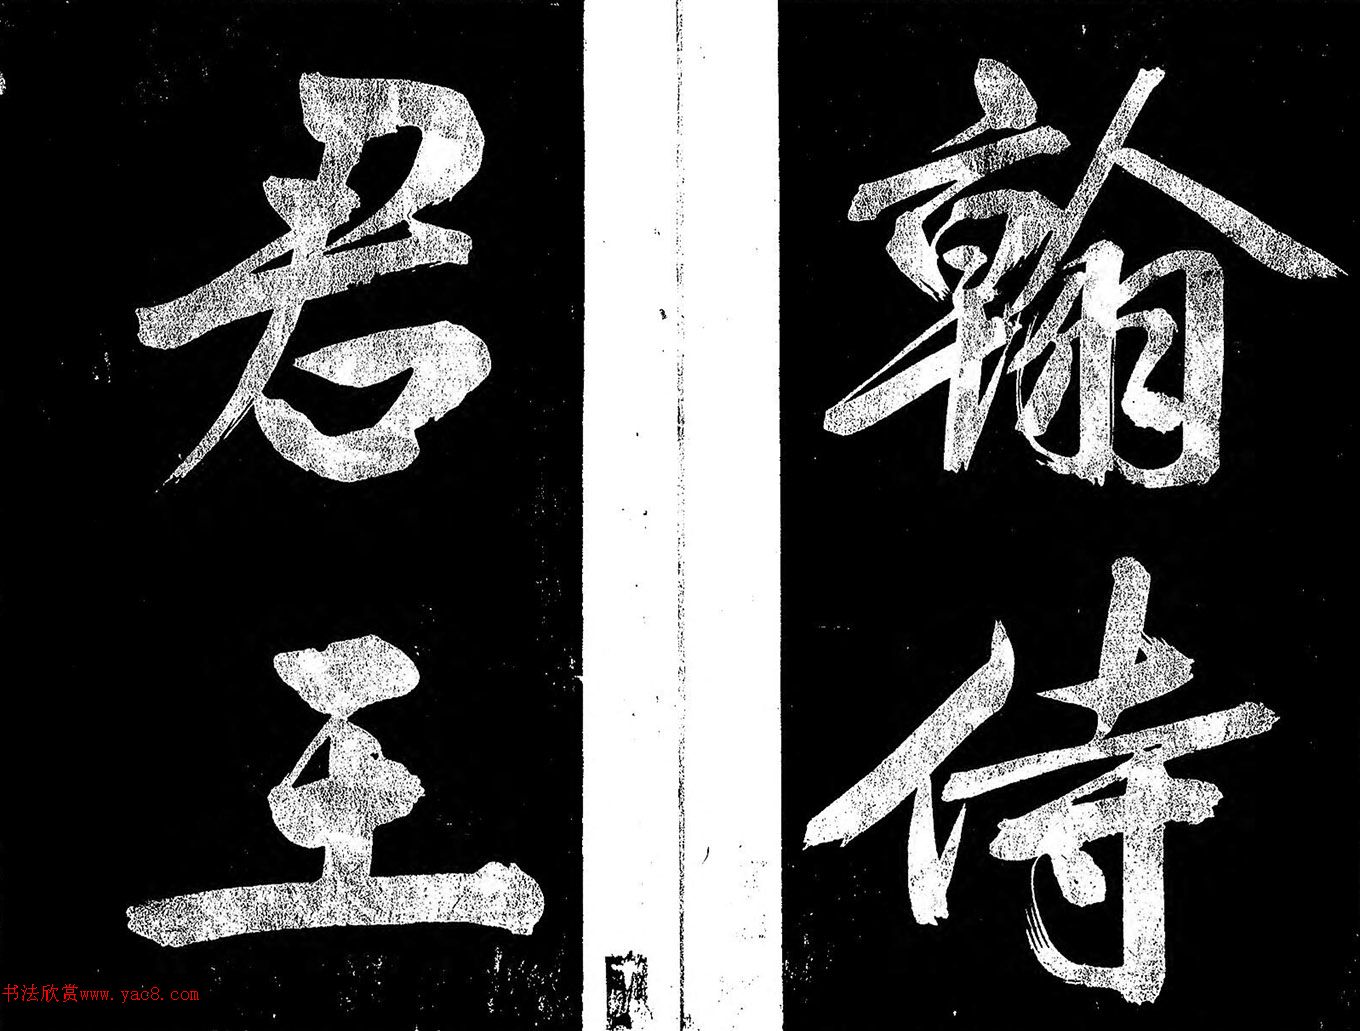 翰侍
君王
书法欣赏www.yac8.com